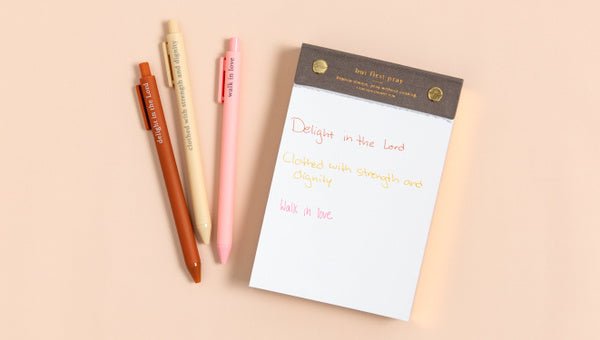 delight in the Lord
clothed with strength and dignity
walk in love
but first pray
Rejoice always, pray without ceasing.
Delight in the Lord
Clothed with strength and
dignity
Walk in love